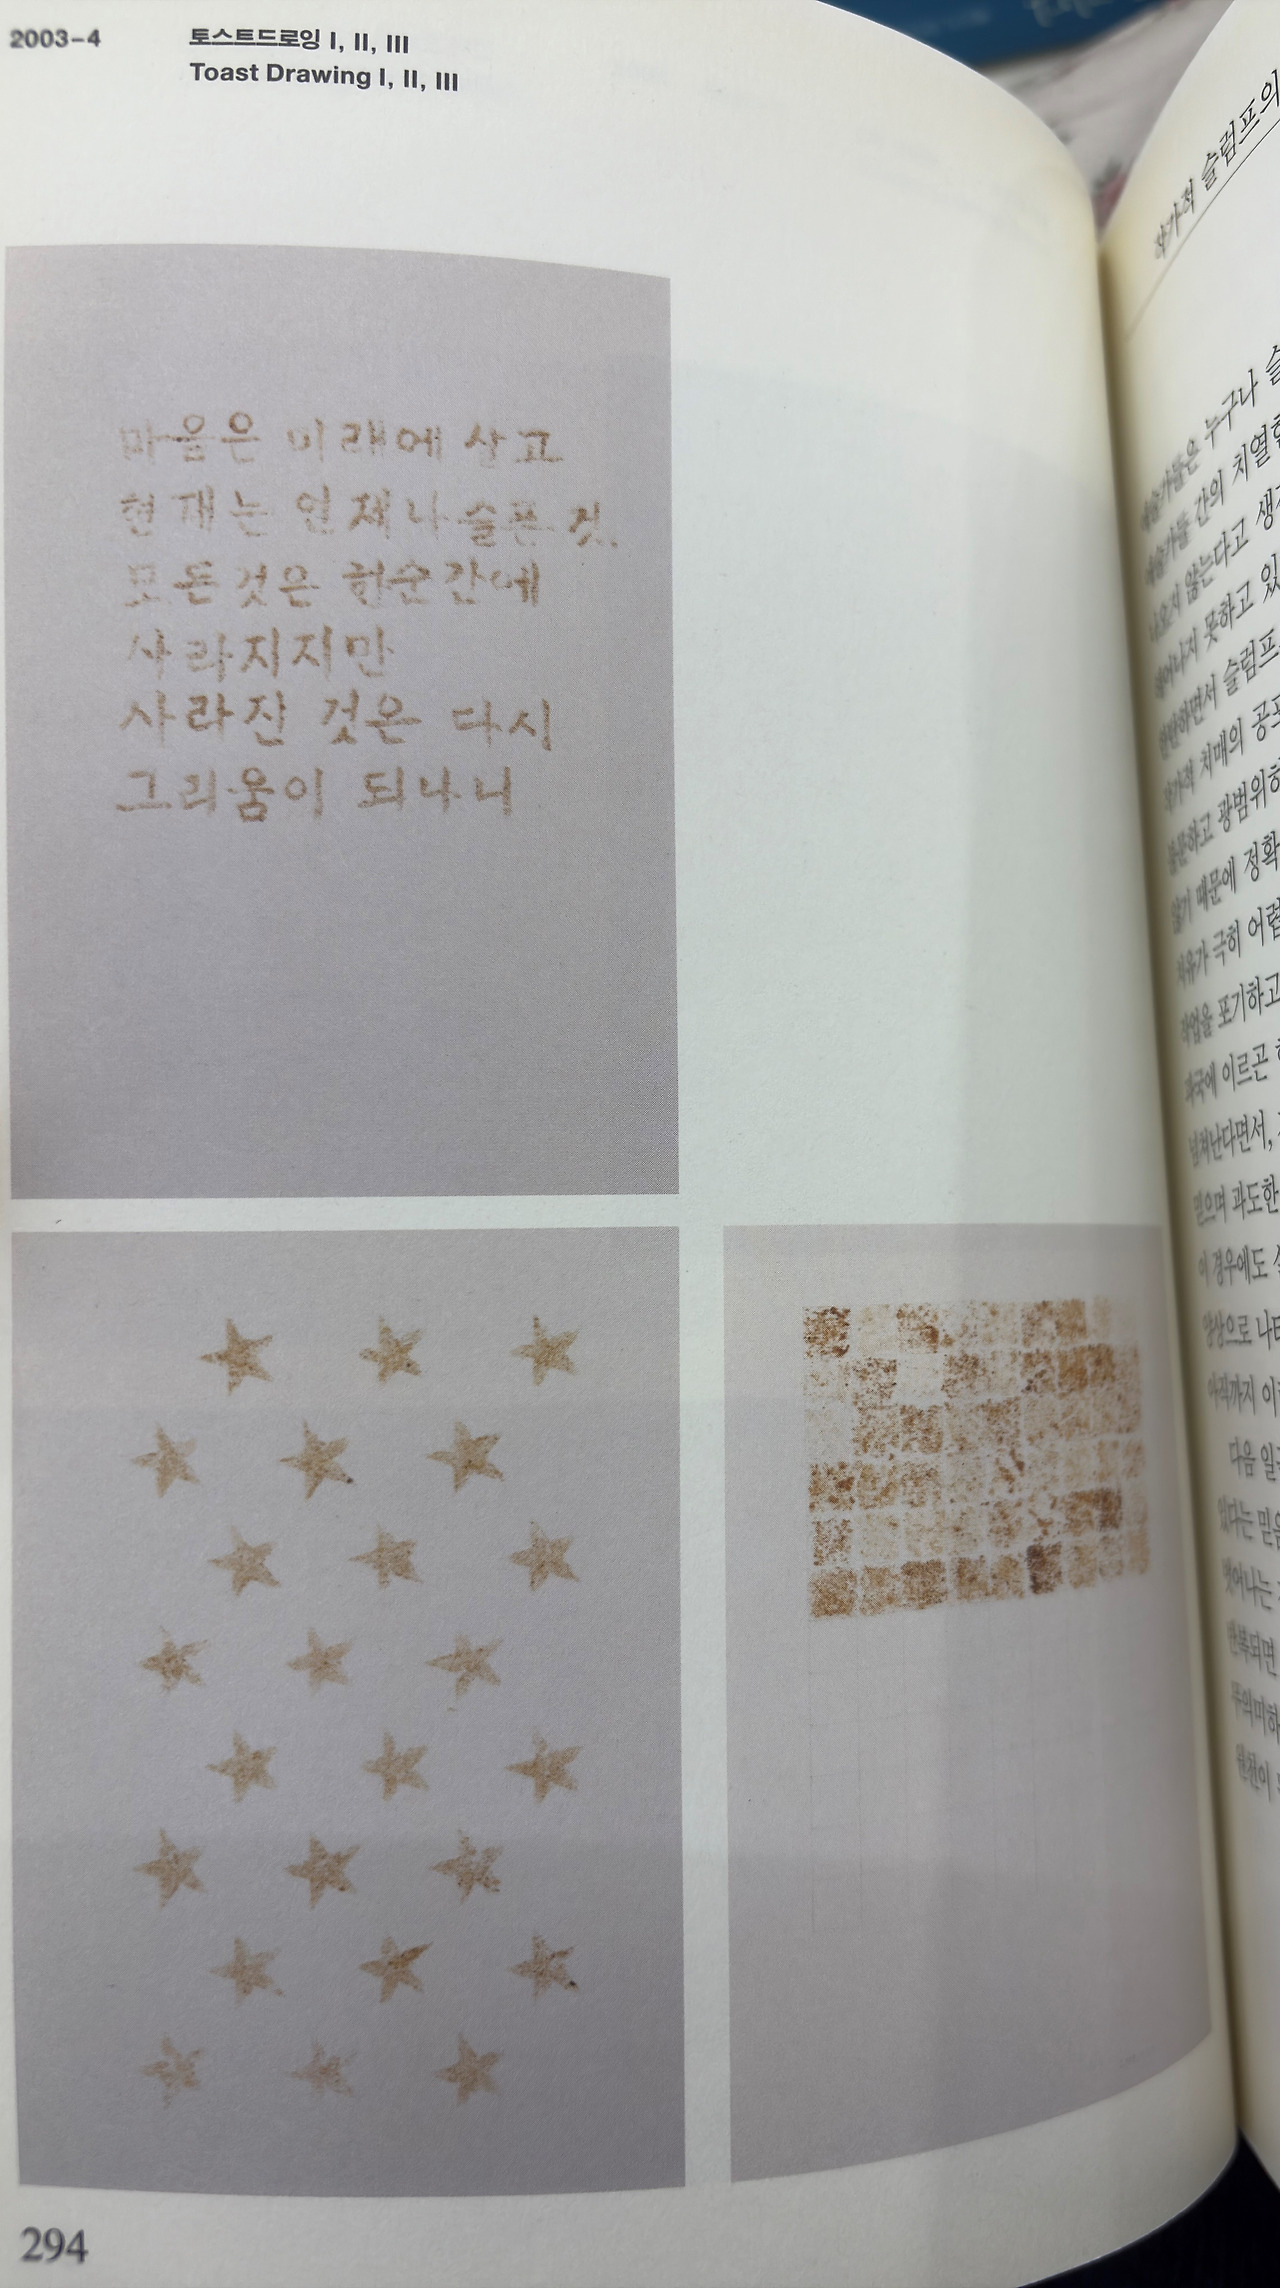 2003–4
토스트드로잉 I, II, III
Toast Drawing I, II, III
마음은 미래에 살고
현재는 언제나 슬픈 것.
모든것은 한순간에
사라지지만
사라진 것은 다시
그리움이 되나니
294
작가적 슬럼프의
예술가들은 누구나
예술가들 간의
나오지 않는다고
헤어나지 못하고
한탄하면서
작가적 치매의
불문하고
않기 때문에
치유가 극히
작업을 포기하고
파국에 이르곤
넘쳐난다면서,
믿으며 과도한
이 경우에도
양상으로
아직까지
다음
있다는
벗어나는
반복되면